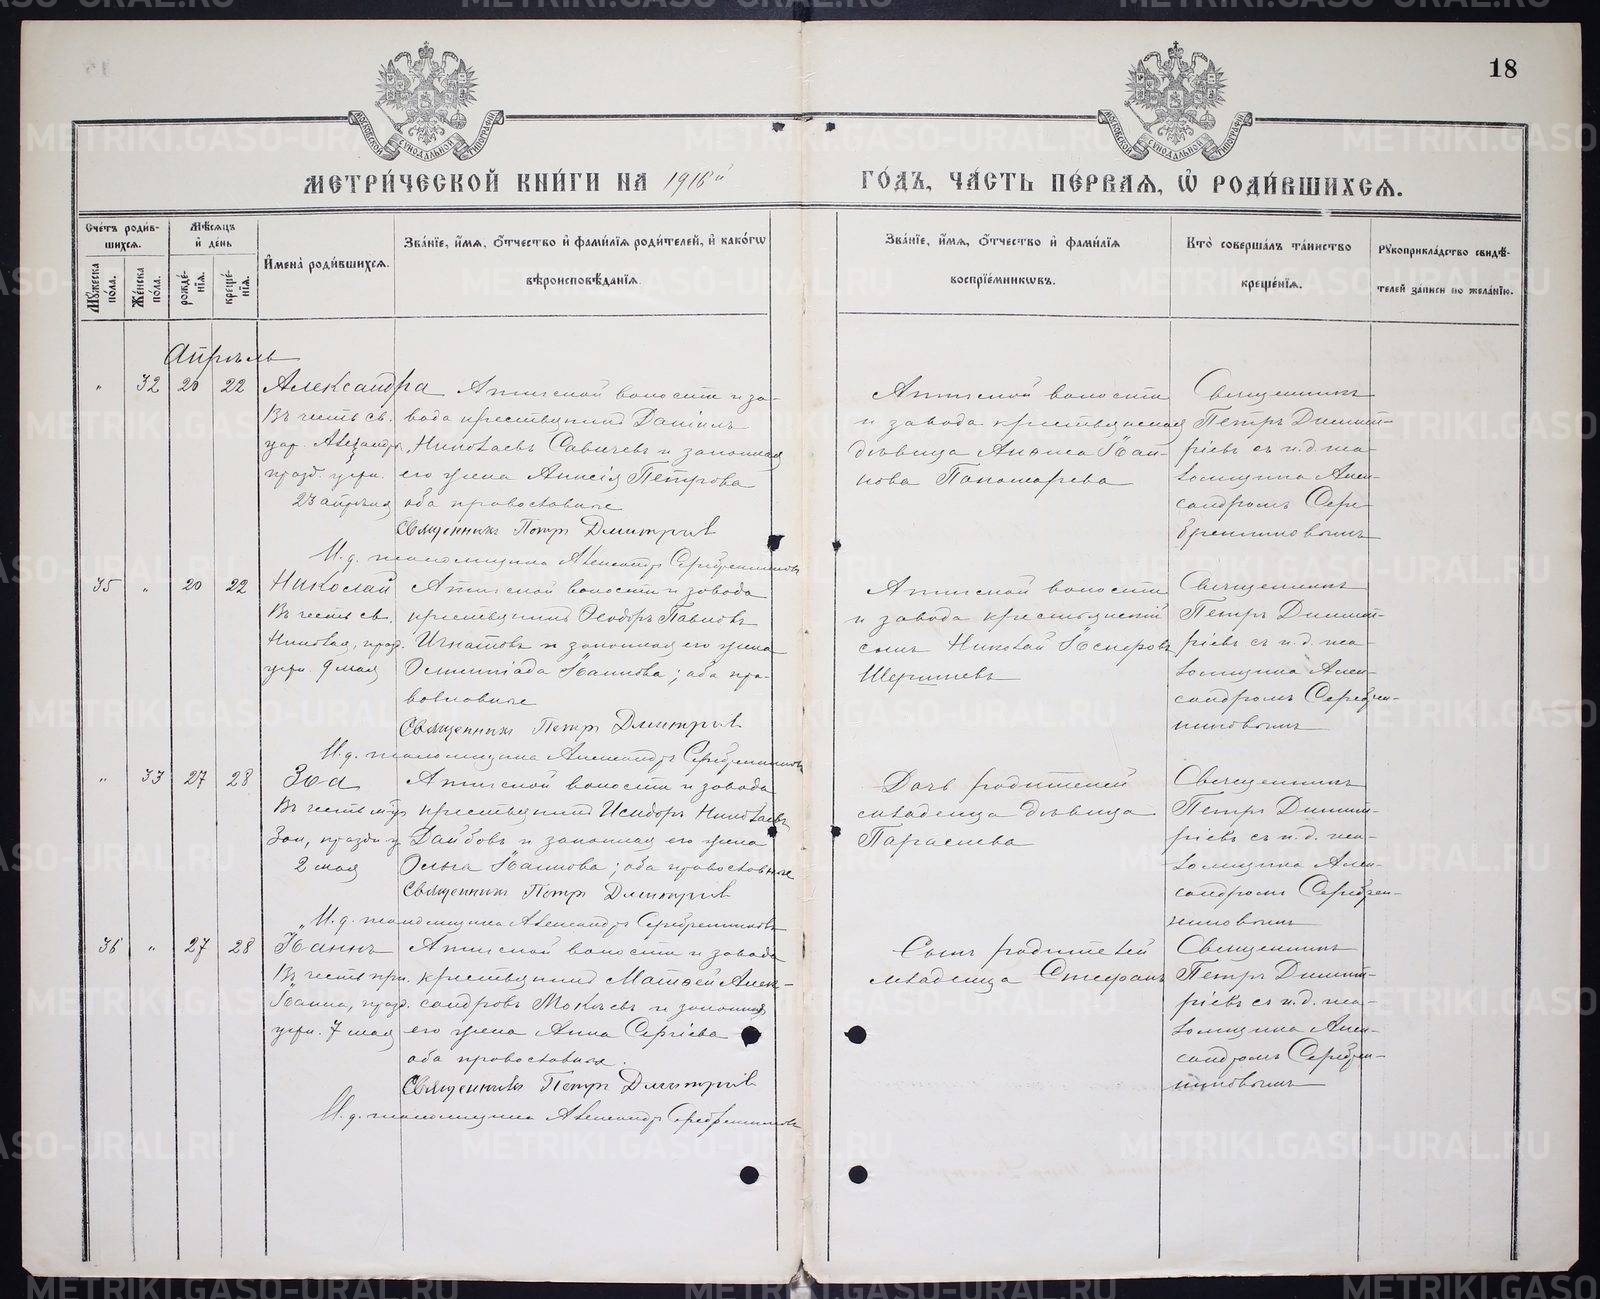 18
МОСКОВСКОЙ СѴНОДАЛЬНОЙ ТИПОГРАФІИ
МОСКОВСКОЙ СѴНОДАЛЬНОЙ ТИПОГРАФІИ
МЕТРИ́ЧЕСКОЙ КНИ́ГИ НА 1916й
ГО́ДЪ, ЧА́СТЬ ПЕ́РВАЯ, Ѿ РОДИ́ВШИХСЯ.
Сче́тъ роди́в-
шихся.
Му́жеска по́ла.
Же́нска по́ла.
Мѣ́сяцъ
и҆ де́нь
рожде́-
нїя.
креще́-
нїя.
И҆мена̀ роди́вшихся.
Зва́нїе, и҆́мя, ѻ҆́тчество и҆ фами́лїя роди́телей, и҆ како́гѡ
вѣроисповѣ́данїя.
Зва́нїе, и҆́мя, ѻ҆́тчество и҆ фами́лїя
воспрїе́мникѡвъ.
Кто̀ соверша́лъ та́инство
креще́нїя.
Рꙋкоприкла́дство свидѣ́-
телей за́писи по жела́нїю.
Апрѣль
" 32 20 22
Александра
Въ честь св.
цар. Александры,
празд. церк.
23 апрѣля
Атигской волости и за-
вода крестьянинъ Даніилъ
Николаевъ Савичевъ и законная
его жена Анисія Петрова
оба православные
Священникъ Петръ Дмитріев
И. д. псаломщика Александръ Серебренниковъ
Атигской волости
и завода крестьянская
дѣвица Анѳиса Іоан-
нова Пономарева
Священникъ
Петръ Димит-
ріевъ съ и. д. пса-
ломщика Алек-
сандромъ Сере-
бренниковымъ
35 " 20 22
Николай
Въ честь св.
Николая, празд.
церк. 9 мая
Атигской волости и завода
крестьянинъ Ѳеодоръ Павловъ
Игнатовъ и законная его жена
Олимпіада Іоаннова; оба пра-
вославные
Священникъ Петръ Дмитріев
И. д. псаломщика Александръ Серебренниковъ
Атигской волости
и завода крестьянскій
сынъ Николай
Шершневъ
Священникъ
Петръ Димит-
ріевъ съ и. д. пса-
ломщика Алек-
сандромъ Серебрен-
никовымъ
" 33 27 28
Зоа
Въ честь м-цы
Зои, праздн. ц.
2 мая
Атигской волости и завода
крестьянинъ Исидоръ Николаевъ
и законная его жена
Ольга Іоаннова; оба православные
Священникъ Петръ Дмитріев
И. д. псаломщика Александръ Серебренниковъ
Дочь родителей
младенца дѣвица
Параскева
Священникъ
Петръ Димит-
ріевъ съ и. д. пса-
ломщика Алек-
сандромъ Серебрен-
никовымъ
36 " 27 28
Іоаннъ
Въ честь
Іоанна, празд.
церк. 7 мая
Атигской волости и завода
крестьянинъ Матѳей Алек-
сандровъ и законная
его жена Анна Сергіева
оба православные.
Священникъ Петръ Дмитріев
И. д. псаломщика Александръ Серебренниковъ
Сынъ родителей
младенца Стефанъ
Священникъ
Петръ Димит-
ріевъ съ и. д. пса-
ломщика Алек-
сандромъ Серебрен-
никовымъ
METRIKI.GASO-URAL.RU